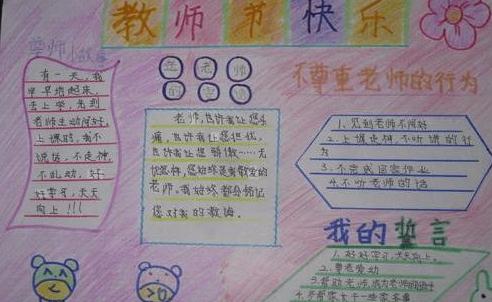 教师节快乐
尊师小故事
有一天,我
早早地起床,
去上学,见到
老师主动问好,
上课时,我不
说话,不走神,
不乱动,好
好学习,天天
向上!!!
老师
老师,也许我让您头
痛,也许我让您担忧,
也许我让您骄傲……无
论怎样,您始终是我敬爱的
老师。我始终都会铭记
您对我的教诲。
不尊重老师的行为
1、见到老师不问好
2、上课走神,不听讲的行
为
3、不完成回家作业
4、不听老师的话
我的誓言
1、好好学习,天天向上。
2、尊老爱幼
3、帮助老师,成为老师的助手